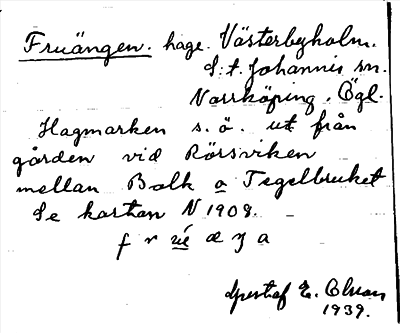 Fruängen. hage. Västerbyholm.
S:t. Johannis sn.
Norrköping. Ögl.
Hagmarken s.ö. ut från
gården vid Rörsviken
mellan Balk o Tegelbruket
Se kartan N 1908.
Gustaf E. Olsson
1939.